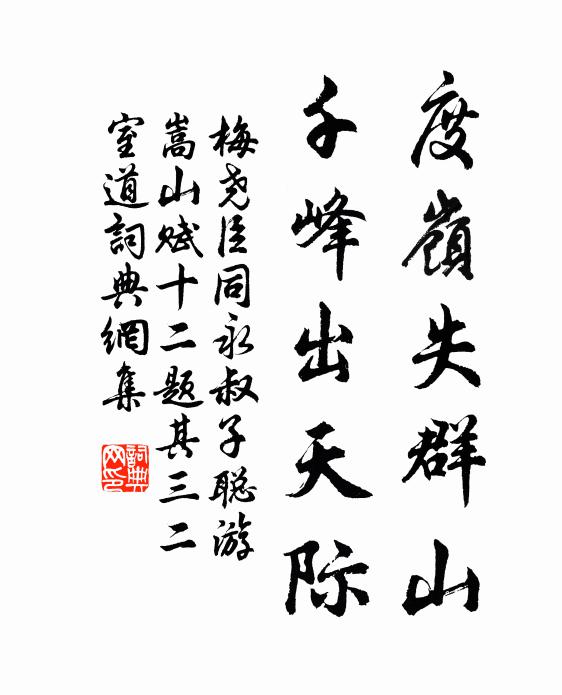 度嶺失群山
千峰出天际
梅尧臣同永叔子聪游
嵩山赋十二题其三二
室道詞典網集
詞典网印